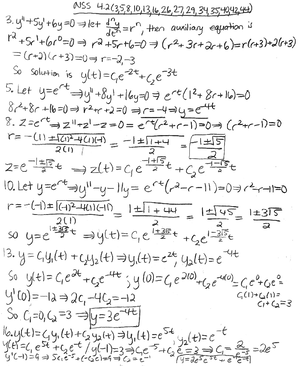 NSS 4.2(3,5,8,10,13,16,26,27,29,34,35,40,42,44)
3. y''+5y'+6y=0 ⇒ let dⁿy/dtⁿ=rⁿ, then auxiliary equation is
r²+5r¹+6r⁰=0 ⇒ r²+5r+6=0 ⇒ (r²+3r+2r+6)=r(r+3)+2(r+3)
=(r+2)(r+3)=0 ⇒ r=-2,-3
So solution is y(t)=C₁e^-2t+C₂e^-3t
5. Let y=e^rt ⇒ y''+8y'+16y=0 ⇒ e^rt(r²+8r+16)=0
⇒ r=-4 ⇒ y=e^-4t
8. z=e^rt ⇒ z''+z'-z=0 = e^rt(r²+r-1)=0 ⇒ (r²+r-1)=0
r = (-(1)±√((1)²-4(1)(-1)))/2(1) = (-1±√(1+4))/2 = (-1±√5)/2
z=e^((-1±√5)/2)t ⇒ z(t)=C₁e^((-1+√5)/2)t+C₂e^((-1-√5)/2)t
10. Let y=e^rt ⇒ y''-y'-11y=e^rt(r²-r-11)=0 ⇒ r²-r-11=0
r = (-(-1)±√((-1)²-4(1)(-11)))/2(1) = (1±√(1+44))/2 = (1±√45)/2 = (1±3√5)/2
so y=e^((1±3√5)/2)t ⇒ y(t)=C₁e^((1+3√5)/2)t+C₂e^((1-3√5)/2)t
13. y=C₁y₁(t)+C₂y₂(t) ⇒ y₁(t)=e^2t, y₂(t)=e^-4t
So y(t)=C₁e^2t+C₂e^-4t; y(0)=C₁e^2(0)+C₂e^-4(0)=C₁e⁰+C₂e⁰=
C₁(1)+C₂(1)=
C₁+C₂=3
y'(0)=-12 ⇒ 2C₁-4C₂=-12
So C₁=0, C₂=3 ⇒ y=3e^-4t
16. y(t)=C₁y₁(t)+C₂y₂(t) ⇒ y₁(t)=e^5t, y₂(t)=e^-t
y(t)=C₁e^5t+C₂e^-t